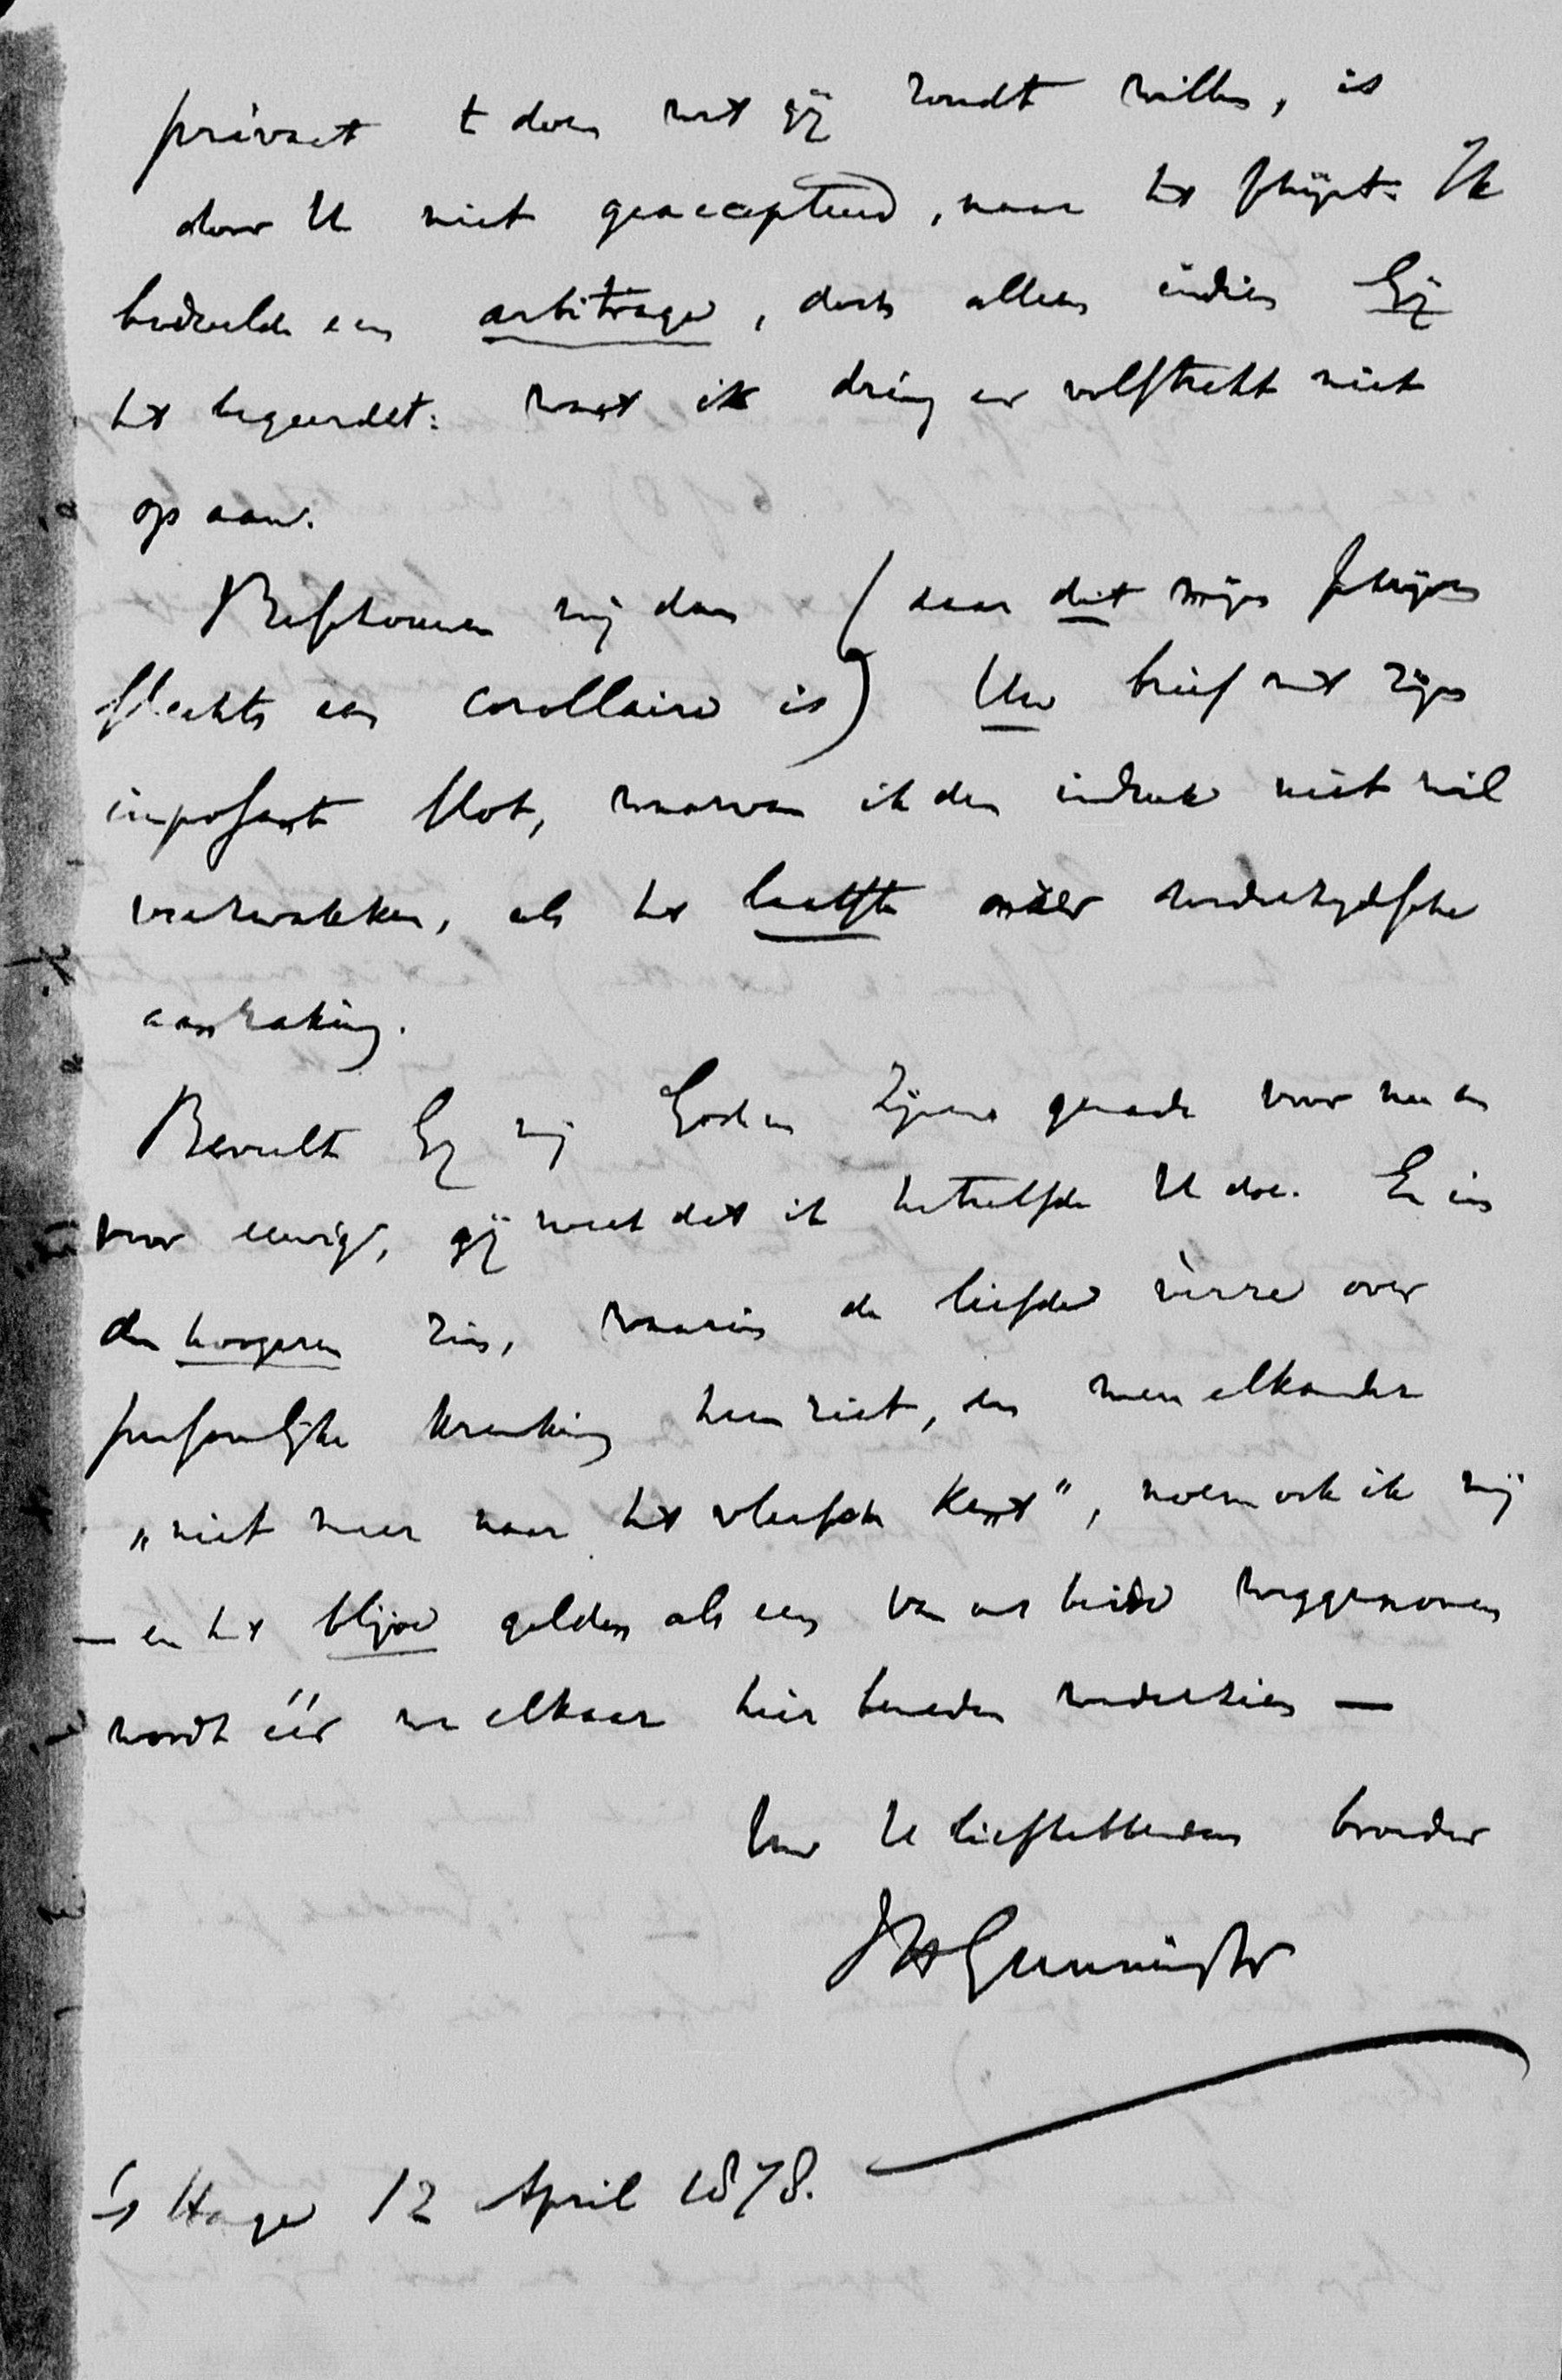 privaat te doen wat gij zoudt willen, is
door U niet geaccepteerd, naar het schijnt. Ik
bedoelde een arbitrage, doch alleen indien Gij
het begeerdet: want ik dring er volstrekt niet
op aan.
Beschouwen wij dan (daar dit mijn schrijven
slechts een corollaire is) Uw brief met zijn
imposant slot, waarvan ik den indruk niet wil
verzwakken, als het laatste onzer wederzijdsche
aanraking.
Beveelt Gij mij Gode en Zijner genade voor nu en
voor eeuwig, gij weet dat ik hetzelfde U doe. En in
den hoogeren zin, waarin de liefde vèrre over
persoonlijke krenking heen ziet, en men elkander
„niet meer naar het vleesch kent", noem ook ik mij
— en het blijve gelden als een van ons beide weggenomen
wordt éér we elkaar hier beneden wederzien —
Uw U liefhebbenden broeder
JH Gunning Jr
's Hage 12 April 1878.